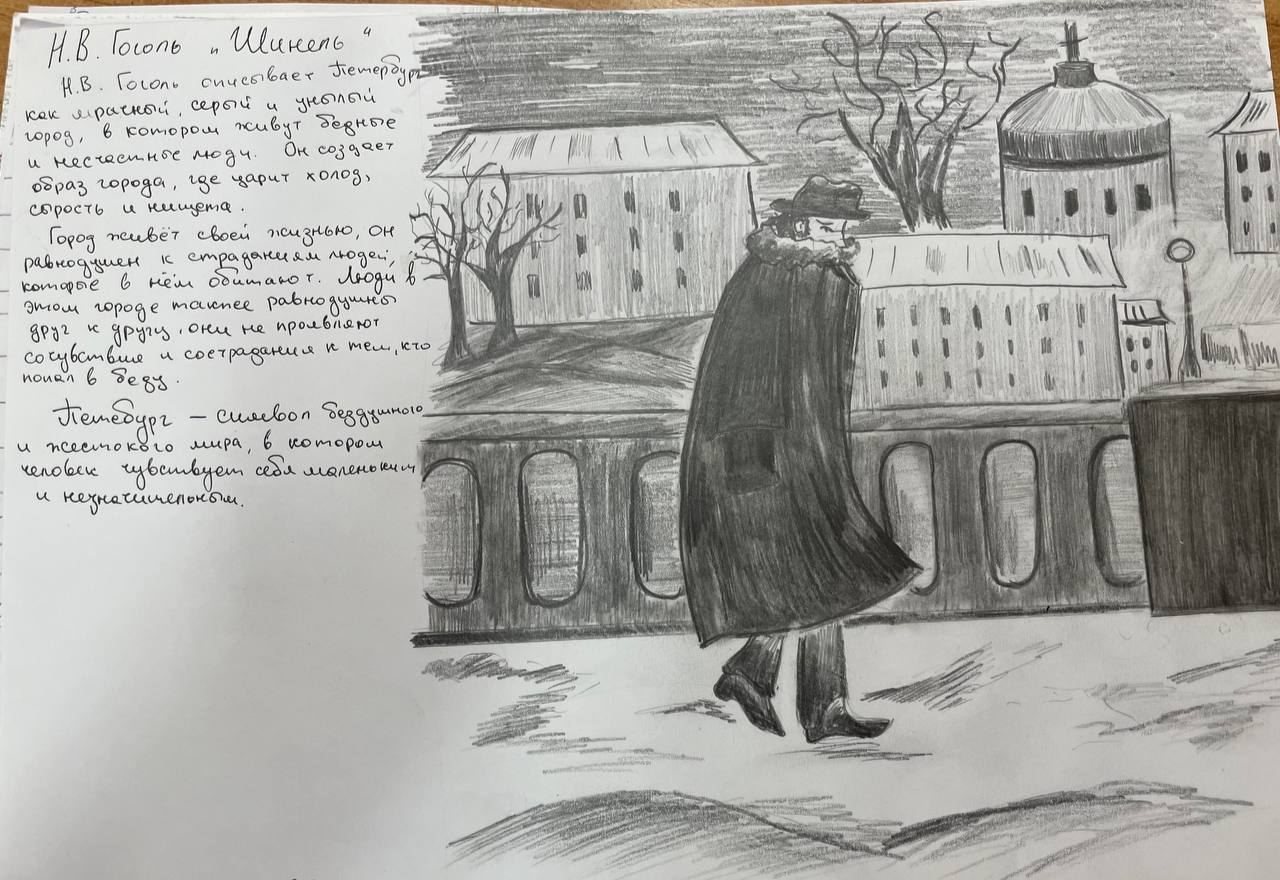 Н.В. Гоголь „Шинель“
Н.В. Гоголь описывает Петербург
как мрачный, серый и унылый
город, в котором живут бедные
и несчастные люди. Он создает
образ города, где царит холод,
сырость и нищета.
Город живёт своей жизнью, он
равнодушен к страданиям людей,
которые в нём обитают. Люди в
этом городе также равнодушны
друг к другу, они не проявляют
сочувствие и сострадания к тем, кто
попал в беду.
Петебург — символ бездушного
и жестокого мира, в котором
человек чувствует себя маленьким
и незначительным.